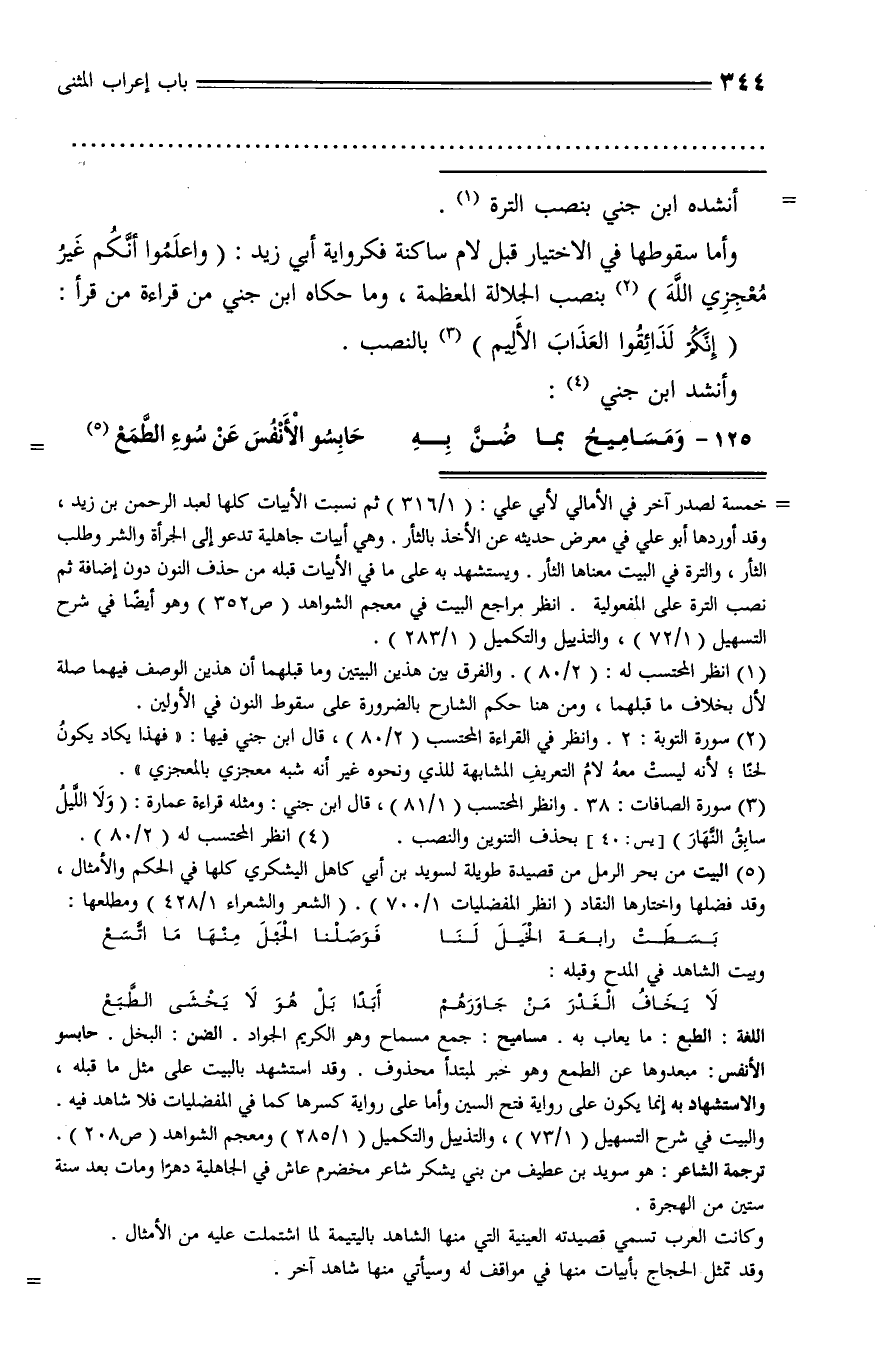 ٣٤٤ باب إعراب المثنى
= أنشده ابن جني بنصب الترة (١) .
وأما سقوطها في الاختيار قبل لام ساكنة فكرواية أبي زيد : ( واعلَمُوا أنَّكُم غَيرُ
مُعْجِزِي اللَّهَ ) (٢) بنصب الجلالة المعظمة ، وما حكاه ابن جني من قراءة من قرأ :
( إِنَّكُمْ لَذَائِقُوا العَذَابَ الأَلِيم ) (٣) بالنصب .
وأنشد ابن جني (٤) :
١٢٥ - وَمَسَامِيحُ بما ضُنَّ بِـهِ حَابِسُو الْأَنْفُسَ عَنْ سُوءِ الطَّمَعْ (٥) =
= خمسة لصدر آخر في الأمالي لأبي علي : ( ٣١٦/١ ) ثم نسبت الأبيات كلها لعبد الرحمن بن زيد ،
وقد أوردها أبو علي في معرض حديثه عن الأخذ بالثأر . وهي أبيات جاهلية تدعو إلى الجرأة والشر وطلب
الثأر ، والترة في البيت معناها الثأر . ويستشهد به على ما في الأبيات قبله من حذف النون دون إضافة ثم
نصب الترة على المفعولية . انظر مراجع البيت في معجم الشواهد ( ص٣٥٢ ) وهو أيضًا في شرح
التسهيل ( ٧٢/١ ) ، والتذييل والتكميل ( ٢٨٣/١ ) .
(١) انظر المحتسب له : ( ٨٠/٢ ) . والفرق بين هذين البيتين وما قبلهما أن هذين الوصف فيهما صلة
لأل بخلاف ما قبلهما ، ومن هنا حكم الشارح بالضرورة على سقوط النون في الأولين .
(٢) سورة التوبة : ٢ . وانظر في القراءة المحتسب ( ٨٠/٢ ) ، قال ابن جني فيها : « فهذا يكاد يكونُ
لحنًا ؛ لأنه ليستْ معهُ لامُ التعريفِ المشابهة للذي ونحوه غير أنه شبه معجزي بالمعجزي » .
(٣) سورة الصافات : ٣٨ . وانظر المحتسب ( ٨١/١ ) ، قال ابن جني : ومثله قراءة عمارة : ( وَلَا اللَّيلُ
سابِقُ النَّهَارَ ) [ يس : ٤٠ ] بحذف التنوين والنصب . (٤) انظر المحتسب له ( ٨٠/٢ ) .
(٥) البيت من بحر الرمل من قصيدة طويلة لسويد بن أبي كاهل اليشكري كلها في الحكم والأمثال ،
وقد فضلها واختارها النقاد ( انظر المفضليات ٧٠٠/١ ) . ( الشعر والشعراء ٤٢٨/١ ) ومطلعها :
بَـسَـطَـتْ رابـعَـة الخَيـلَ لَـنَـا فَـوَصَـلْـنـا الحَبْـلَ مِنْـهَـا مَـا اتَّسَـعْ
وبيت الشاهد في المدح وقبله :
لَا يَـخَـافُ الْـغَـدْرَ مَـنْ جَـاوَرَهُـمْ أَبَـدًا بَـلْ هُـوَ لَا يَـخْـشَـى الـطَّـبَـعْ
اللغة : الطبع : ما يعاب به . مساميح : جمع مسماح وهو الكريم الجواد . الضن : البخل . حابسو
الأنفس : مبعدوها عن الطمع وهو خبر لمبتدأ محذوف . وقد استشهد بالبيت على مثل ما قبله ،
والاستشهاد به إنما يكون على رواية فتح السين وأما على رواية كسرها كما في المفضليات فلا شاهد فيه .
والبيت في شرح التسهيل ( ٧٣/١ ) ، والتذييل والتكميل ( ٢٨٥/١ ) ومعجم الشواهد ( ص٢٠٨ ) .
ترجمة الشاعر : هو سويد بن عطيف من بني يشكر شاعر مخضرم عاش في الجاهلية دهرًا ومات بعد سنة
ستين من الهجرة .
وكانت العرب تسمي قصيدته العينية التي منها الشاهد باليتيمة لما اشتملت عليه من الأمثال .
وقد تمثل الحجاج بأبيات منها في مواقف له وسيأتي منها شاهد آخر . =